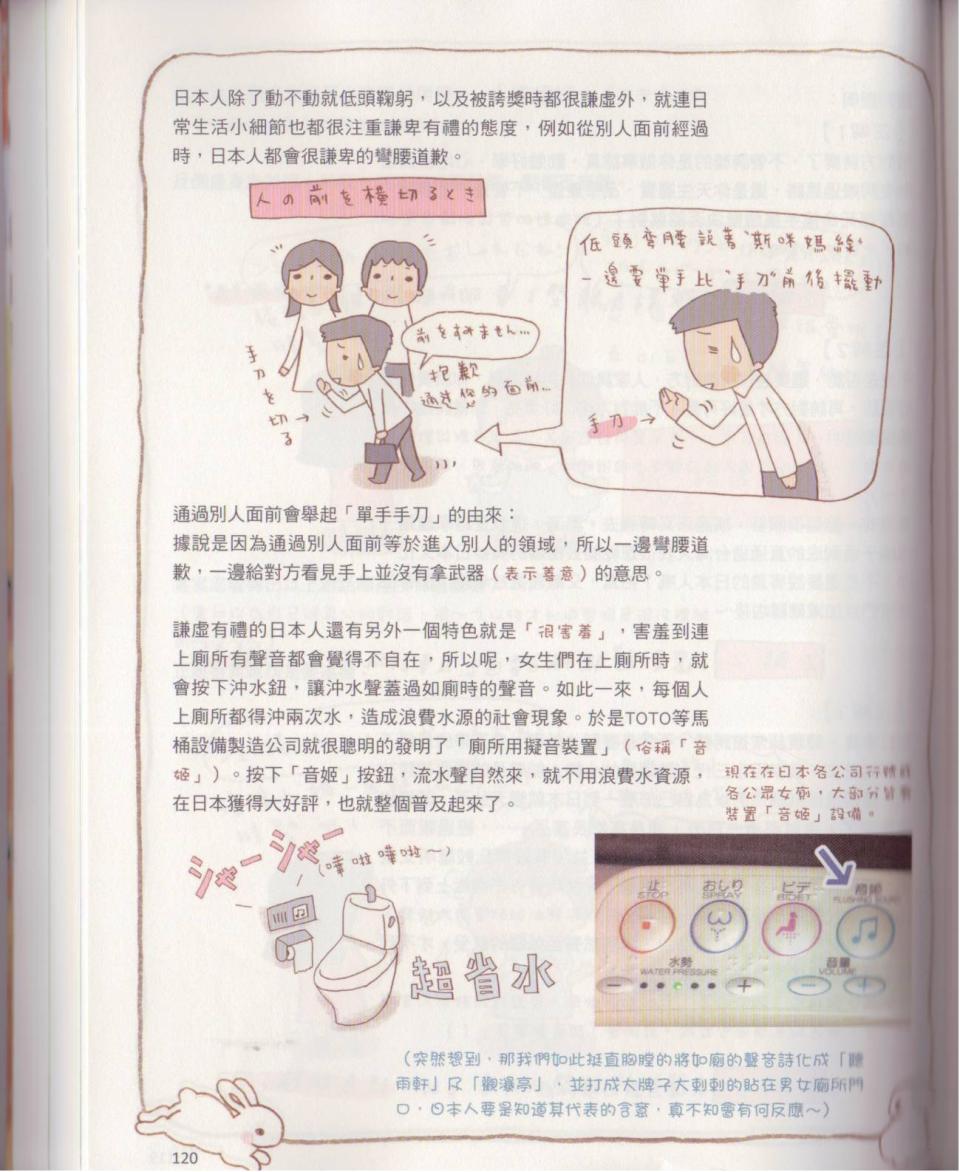 日本人除了動不動就低頭鞠躬，以及被誇獎時都很謙虛外，就連日
常生活小細節也都很注重謙卑有禮的態度，例如從別人面前經過
時，日本人都會很謙卑的彎腰道歉。
人の前を横切るとき
低頭彎腰說著"斯咪媽線"
一邊要單手比"手刀"前後擺動
前をすみません…
抱歉
通過您的面前…
手刀を
切る→
手刀→
通過別人面前會舉起「單手手刀」的由來：
據說是因為通過別人面前等於進入別人的領域，所以一邊彎腰道
歉，一邊給對方看見手上並沒有拿武器（表示善意）的意思。
謙虛有禮的日本人還有另外一個特色就是「很害羞」，害羞到連
上廁所有聲音都會覺得不自在，所以呢，女生們在上廁所時，就
會按下沖水鈕，讓沖水聲蓋過如廁時的聲音。如此一來，每個人
上廁所都得沖兩次水，造成浪費水源的社會現象。於是TOTO等馬
桶設備製造公司就很聰明的發明了「廁所用擬音裝置」（俗稱「音
姬」）。按下「音姬」按鈕，流水聲自然來，就不用浪費水資源，
在日本獲得大好評，也就整個普及起來了。
現在在日本各公司行號
各公眾女廁，大部分皆有
裝置「音姬」設備。
シャーシャー
(嘩啦嘩啦～)
超省水
止
STOP
おしり
SPRAY
ビデ
BIDET
音姫
FLUSHING SOUND
水勢
WATER PRESSURE
音量
VOLUME
－ ＋ － ＋
（突然想到，那我們如此挺直胸膛的將如廁的聲音詩化成「聽
雨軒」及「觀瀑亭」，並打成大牌子大剌剌的貼在男女廁所門
口，日本人要是知道其代表的含意，真不知會有何反應～）
120